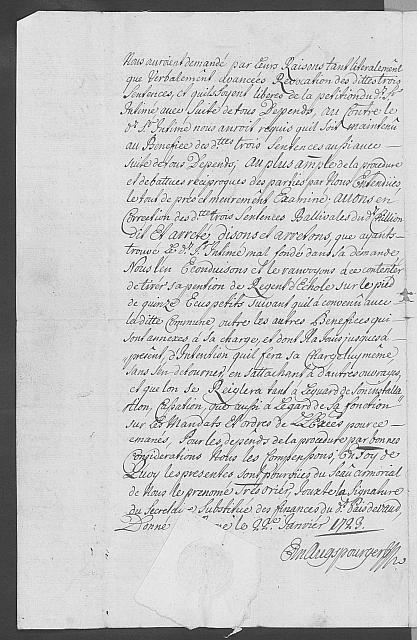 Nous auroient demandé par leurs Raisons tant literalement
que Verbalement avancées Revocation des dittes trois
Sentences, et quils soyent liberés de la petition du d.t S.r
Intimé avec Suitte de tous Depends, au contre le
d.t S.r Intimé nous auroit requis quil soit maintenû
au Benefice des d.ttes trois Sentences aussi avec
Suitte de tous Depends, au plus ample de la procedure
et debatues reciproques des parties par Nous Entendues,
le tout de pres et meurement Examiné, allons en
Correction des d.ttes trois Sentences Ballivales du d.t
dit Et arreté, disons et arretons, que ayants
trouvé Le d.t S.r Intimé mal fondé dans sa demande
Nous l'en Econduisons et le ranvoyons à ce contenter
de tirer sa pention de Regent d'Echole sur le pied
de quinze Ecus petits Suivant quil à convenû avec
la ditte Commune, outre les autres Benefices qui
sont annexés à sa charge, et dont il a jouis jusques à
present, d'Intention quil fera sa Charge luy meme
sans s'en detourner, en s'attachant à d'autres ouvrages,
et que lon se Reiglera tant à L'eguard de son installa
tion, Cassation, que aussi à Legard de sa fonction
sur les Mandats et ordres de LL. EEces pour ce
emanés, Pour les depends de la procedure par bonnes
considerations Nous les Compensons, En foy de
Quoy les presentes sont pourveües du Seau armorial
de Nous le prenomé Tresorier, Jouxte la Signature
du Secret. Substitué des finances du d.t Païs de vaud,
Donné le 22.e Janvier 1723.